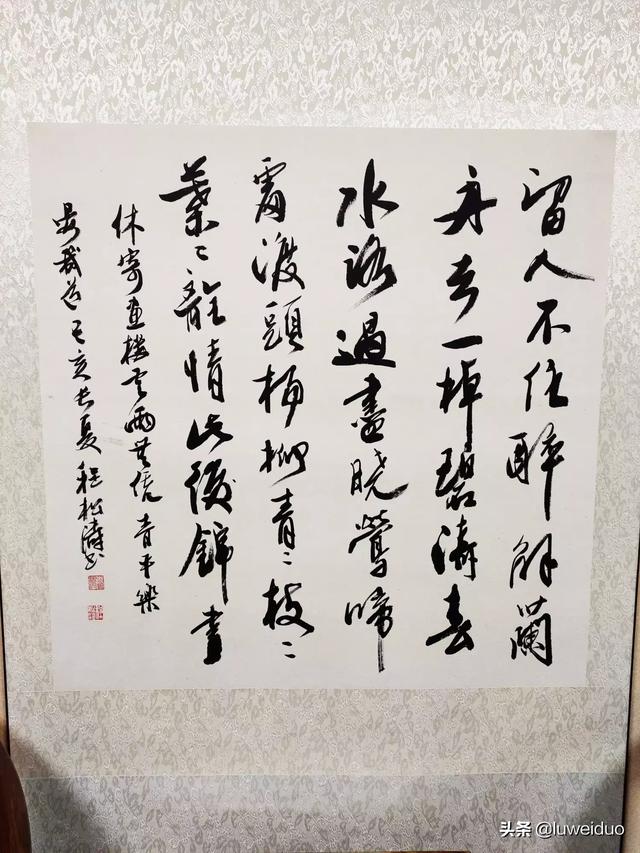 留人不住醉解蘭
舟去一棹碧濤春
水路過盡曉鶯啼
處渡頭楊柳青〻枝〻
葉〻離情此後錦書
休寄畫樓雲雨無凭 青平樂
晏幾道 己亥長夏 程松濤書
头条 @luweiduo